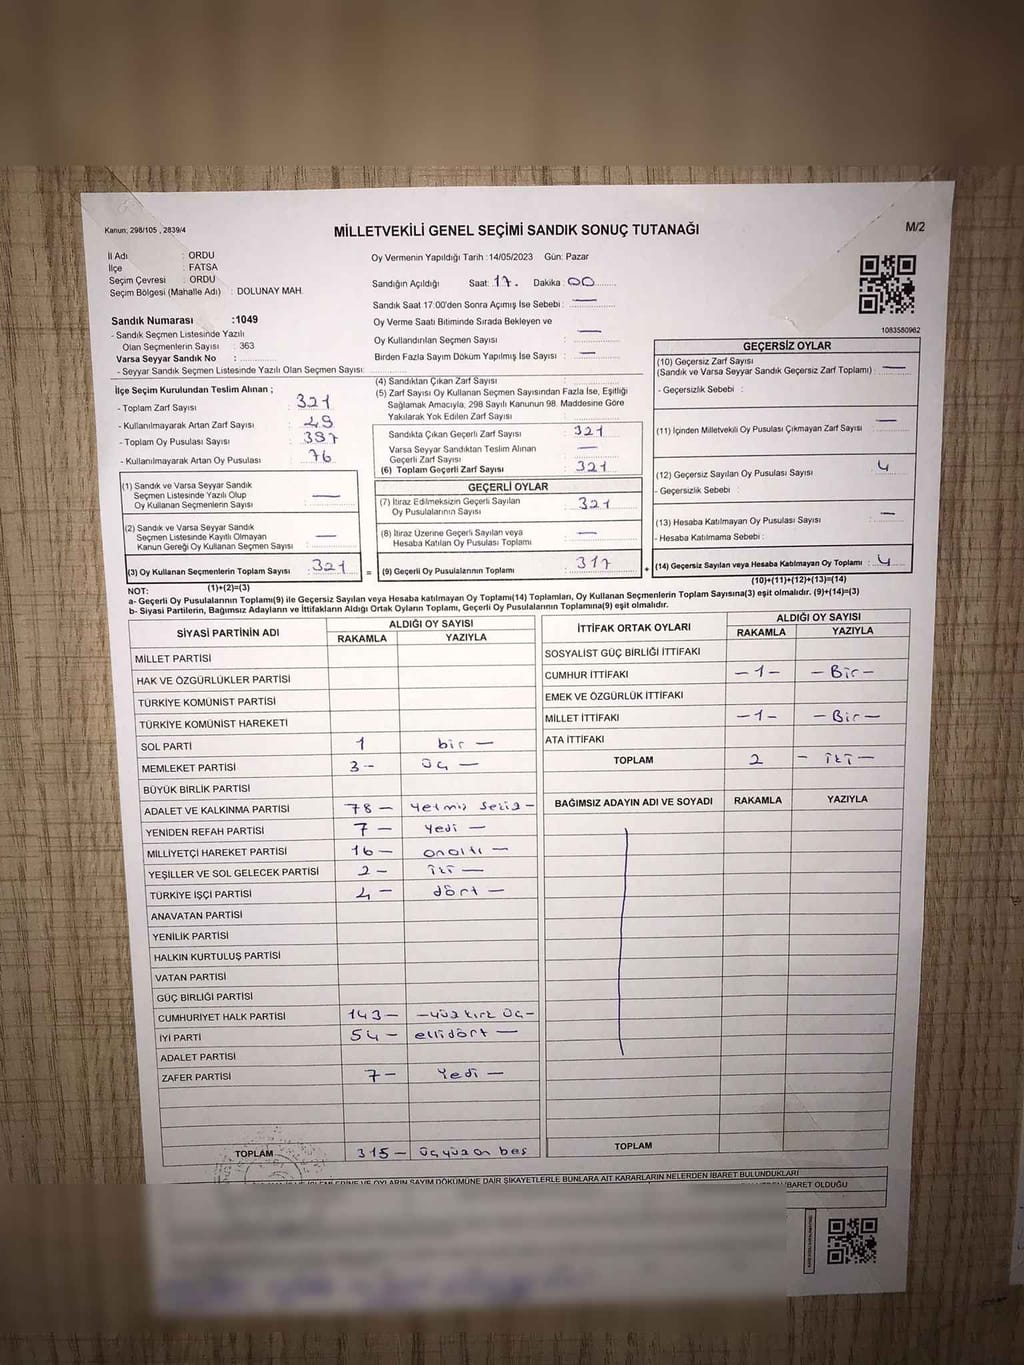 Kanun; 298/105 , 2839/4
MİLLETVEKİLİ GENEL SEÇİMİ SANDIK SONUÇ TUTANAĞI
M/2
İl Adı : ORDU
İlçe : FATSA
Seçim Çevresi : ORDU
Seçim Bölgesi (Mahalle Adı) : DOLUNAY MAH.
Sandık Numarası :1049
- Sandık Seçmen Listesinde Yazılı
Olan Seçmenlerin Sayısı : 363
Varsa Seyyar Sandık No :
- Seyyar Sandık Seçmen Listesinde Yazılı Olan Seçmen Sayısı:
Oy Vermenin Yapıldığı Tarih :14/05/2023 Gün: Pazar
Sandığın Açıldığı Saat: 17. Dakika : 00
Sandık Saat 17:00'den Sonra Açımış İse Sebebi : —
Oy Verme Saati Bitiminde Sırada Bekleyen ve
Oy Kullandırılan Seçmen Sayısı : —
Birden Fazla Sayım Döküm Yapılmış İse Sayısı : —
1083580962
İlçe Seçim Kurulundan Teslim Alınan ;
- Toplam Zarf Sayısı : 321
- Kullanılmayarak Artan Zarf Sayısı : 49
- Toplam Oy Pusulası Sayısı : 397
- Kullanılmayarak Artan Oy Pusulası : 76
(1) Sandık ve Varsa Seyyar Sandık
Seçmen Listesinde Yazılı Olup
Oy Kullanan Seçmenlerin Sayısı : —
(2) Sandık ve Varsa Seyyar Sandık
Seçmen Listesinde Kayıtlı Olmayan
Kanun Gereği Oy Kullanan Seçmen Sayısı : —
(3) Oy Kullanan Seçmenlerin Toplam Sayısı : 321
(1)+(2)=(3)
(4) Sandıktan Çıkan Zarf Sayısı :
(5) Zarf Sayısı Oy Kullanan Seçmen Sayısından Fazla İse, Eşitliği
Sağlamak Amacıyla, 298 Sayılı Kanunun 98. Maddesine Göre
Yakılarak Yok Edilen Zarf Sayısı :
Sandıkta Çıkan Geçerli Zarf Sayısı : 321
Varsa Seyyar Sandıktan Teslim Alınan
Geçerli Zarf Sayısı : —
(6) Toplam Geçerli Zarf Sayısı : 321
GEÇERLİ OYLAR
(7) İtiraz Edilmeksizin Geçerli Sayılan
Oy Pusulalarının Sayısı : 321
(8) İtiraz Üzerine Geçerli Sayılan veya
Hesaba Katılan Oy Pusulası Toplamı : —
= (9) Geçerli Oy Pusulalarının Toplamı : 317
GEÇERSİZ OYLAR
(10) Geçersiz Zarf Sayısı
(Sandık ve Varsa Seyyar Sandık Geçersiz Zarf Toplamı) : —
- Geçersizlik Sebebi :
(11) İçinden Milletvekili Oy Pusulası Çıkmayan Zarf Sayısı : —
(12) Geçersiz Sayılan Oy Pusulası Sayısı : 4
- Geçersizlik Sebebi :
(13) Hesaba Katılmayan Oy Pusulası Sayısı : —
- Hesaba Katılmama Sebebi :
+ (14) Geçersiz Sayılan veya Hesaba Katılmayan Oy Toplamı : 4
(10)+(11)+(12)+(13)=(14)
NOT:
a- Geçerli Oy Pusulalarının Toplamı(9) ile Geçersiz Sayılan veya Hesaba katılmayan Oy Toplamı(14) Toplamları, Oy Kullanan Seçmenlerin Toplam Sayısına(3) eşit olmalıdır. (9)+(14)=(3)
b- Siyasi Partilerin, Bağımsız Adayların ve İttifakların Aldığı Ortak Oyların Toplamı, Geçerli Oy Pusulalarının Toplamına(9) eşit olmalıdır.
SİYASİ PARTİNİN ADI ALDIĞI OY SAYISI
RAKAMLA YAZIYLA
MİLLET PARTİSİ
HAK VE ÖZGÜRLÜKLER PARTİSİ
TÜRKİYE KOMÜNİST PARTİSİ
TÜRKİYE KOMÜNİST HAREKETİ
SOL PARTİ 1 bir —
MEMLEKET PARTİSİ 3 — üç —
BÜYÜK BİRLİK PARTİSİ
ADALET VE KALKINMA PARTİSİ 78 — Yetmiş Sekiz —
YENİDEN REFAH PARTİSİ 7 — Yedi —
MİLLİYETÇİ HAREKET PARTİSİ 16 — onaltı —
YEŞİLLER VE SOL GELECEK PARTİSİ 2 — iki —
TÜRKİYE İŞÇİ PARTİSİ 4 — dört —
ANAVATAN PARTİSİ
YENİLİK PARTİSİ
HALKIN KURTULUŞ PARTİSİ
VATAN PARTİSİ
GÜÇ BİRLİĞİ PARTİSİ
CUMHURİYET HALK PARTİSİ 143 — — yüz kırk üç —
İYİ PARTİ 54 — ellidört —
ADALET PARTİSİ
ZAFER PARTİSİ 7 — Yedi —
TOPLAM 315 — üçyüzon beş
İTTİFAK ORTAK OYLARI ALDIĞI OY SAYISI
RAKAMLA YAZIYLA
SOSYALİST GÜÇ BİRLİĞİ İTTİFAKI
CUMHUR İTTİFAKI — 1 — — Bir —
EMEK VE ÖZGÜRLÜK İTTİFAKI
MİLLET İTTİFAKI — 1 — — Bir —
ATA İTTİFAKI
TOPLAM 2 — iki —
BAĞIMSIZ ADAYIN ADI VE SOYADI RAKAMLA YAZIYLA
TOPLAM
OYLARIN SAYIM DÖKÜMÜNE DAİR ŞİKAYETLERLE BUNLARA AİT KARARLARIN NELERDEN İBARET BULUNDUKLARI
İBARET OLDUĞU